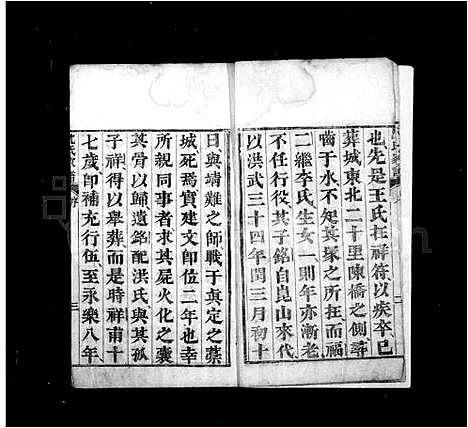 也先是王氏在祥符以疾卒已
葬城東北二十里陳橋之側尋
嚙于水不知其塚之所在而福
二繼李氏生女一則年亦漸老
不任行役其子銘自崑山來代
以洪武三十四年閏三月初十
日與靖難之師戰于真定之藁
城死焉實建文即位二年也幸
所親同事者求其屍火化之囊
其骨以歸遺銘配洪氏與其孤
子祥得以舉葬而是時祥甫十
七歲即補充行伍至永樂八年
二
三